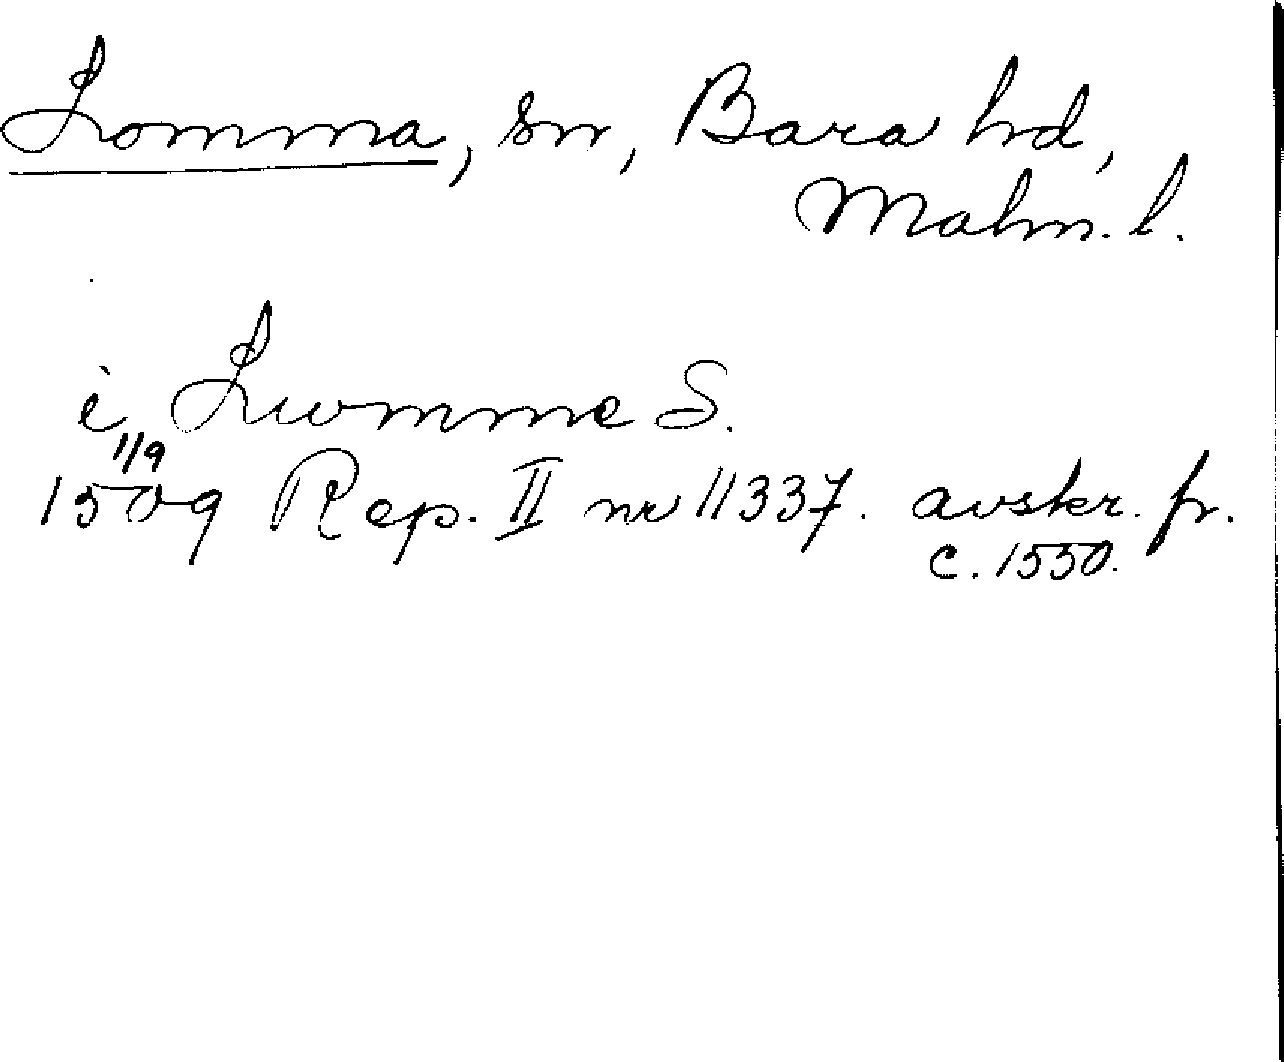 Lomma, sn, Bara hd,
Malm. l.
i Luomme S.
1/9
1509 Rep. II nr 11337. avskr. fr.
c. 1550.